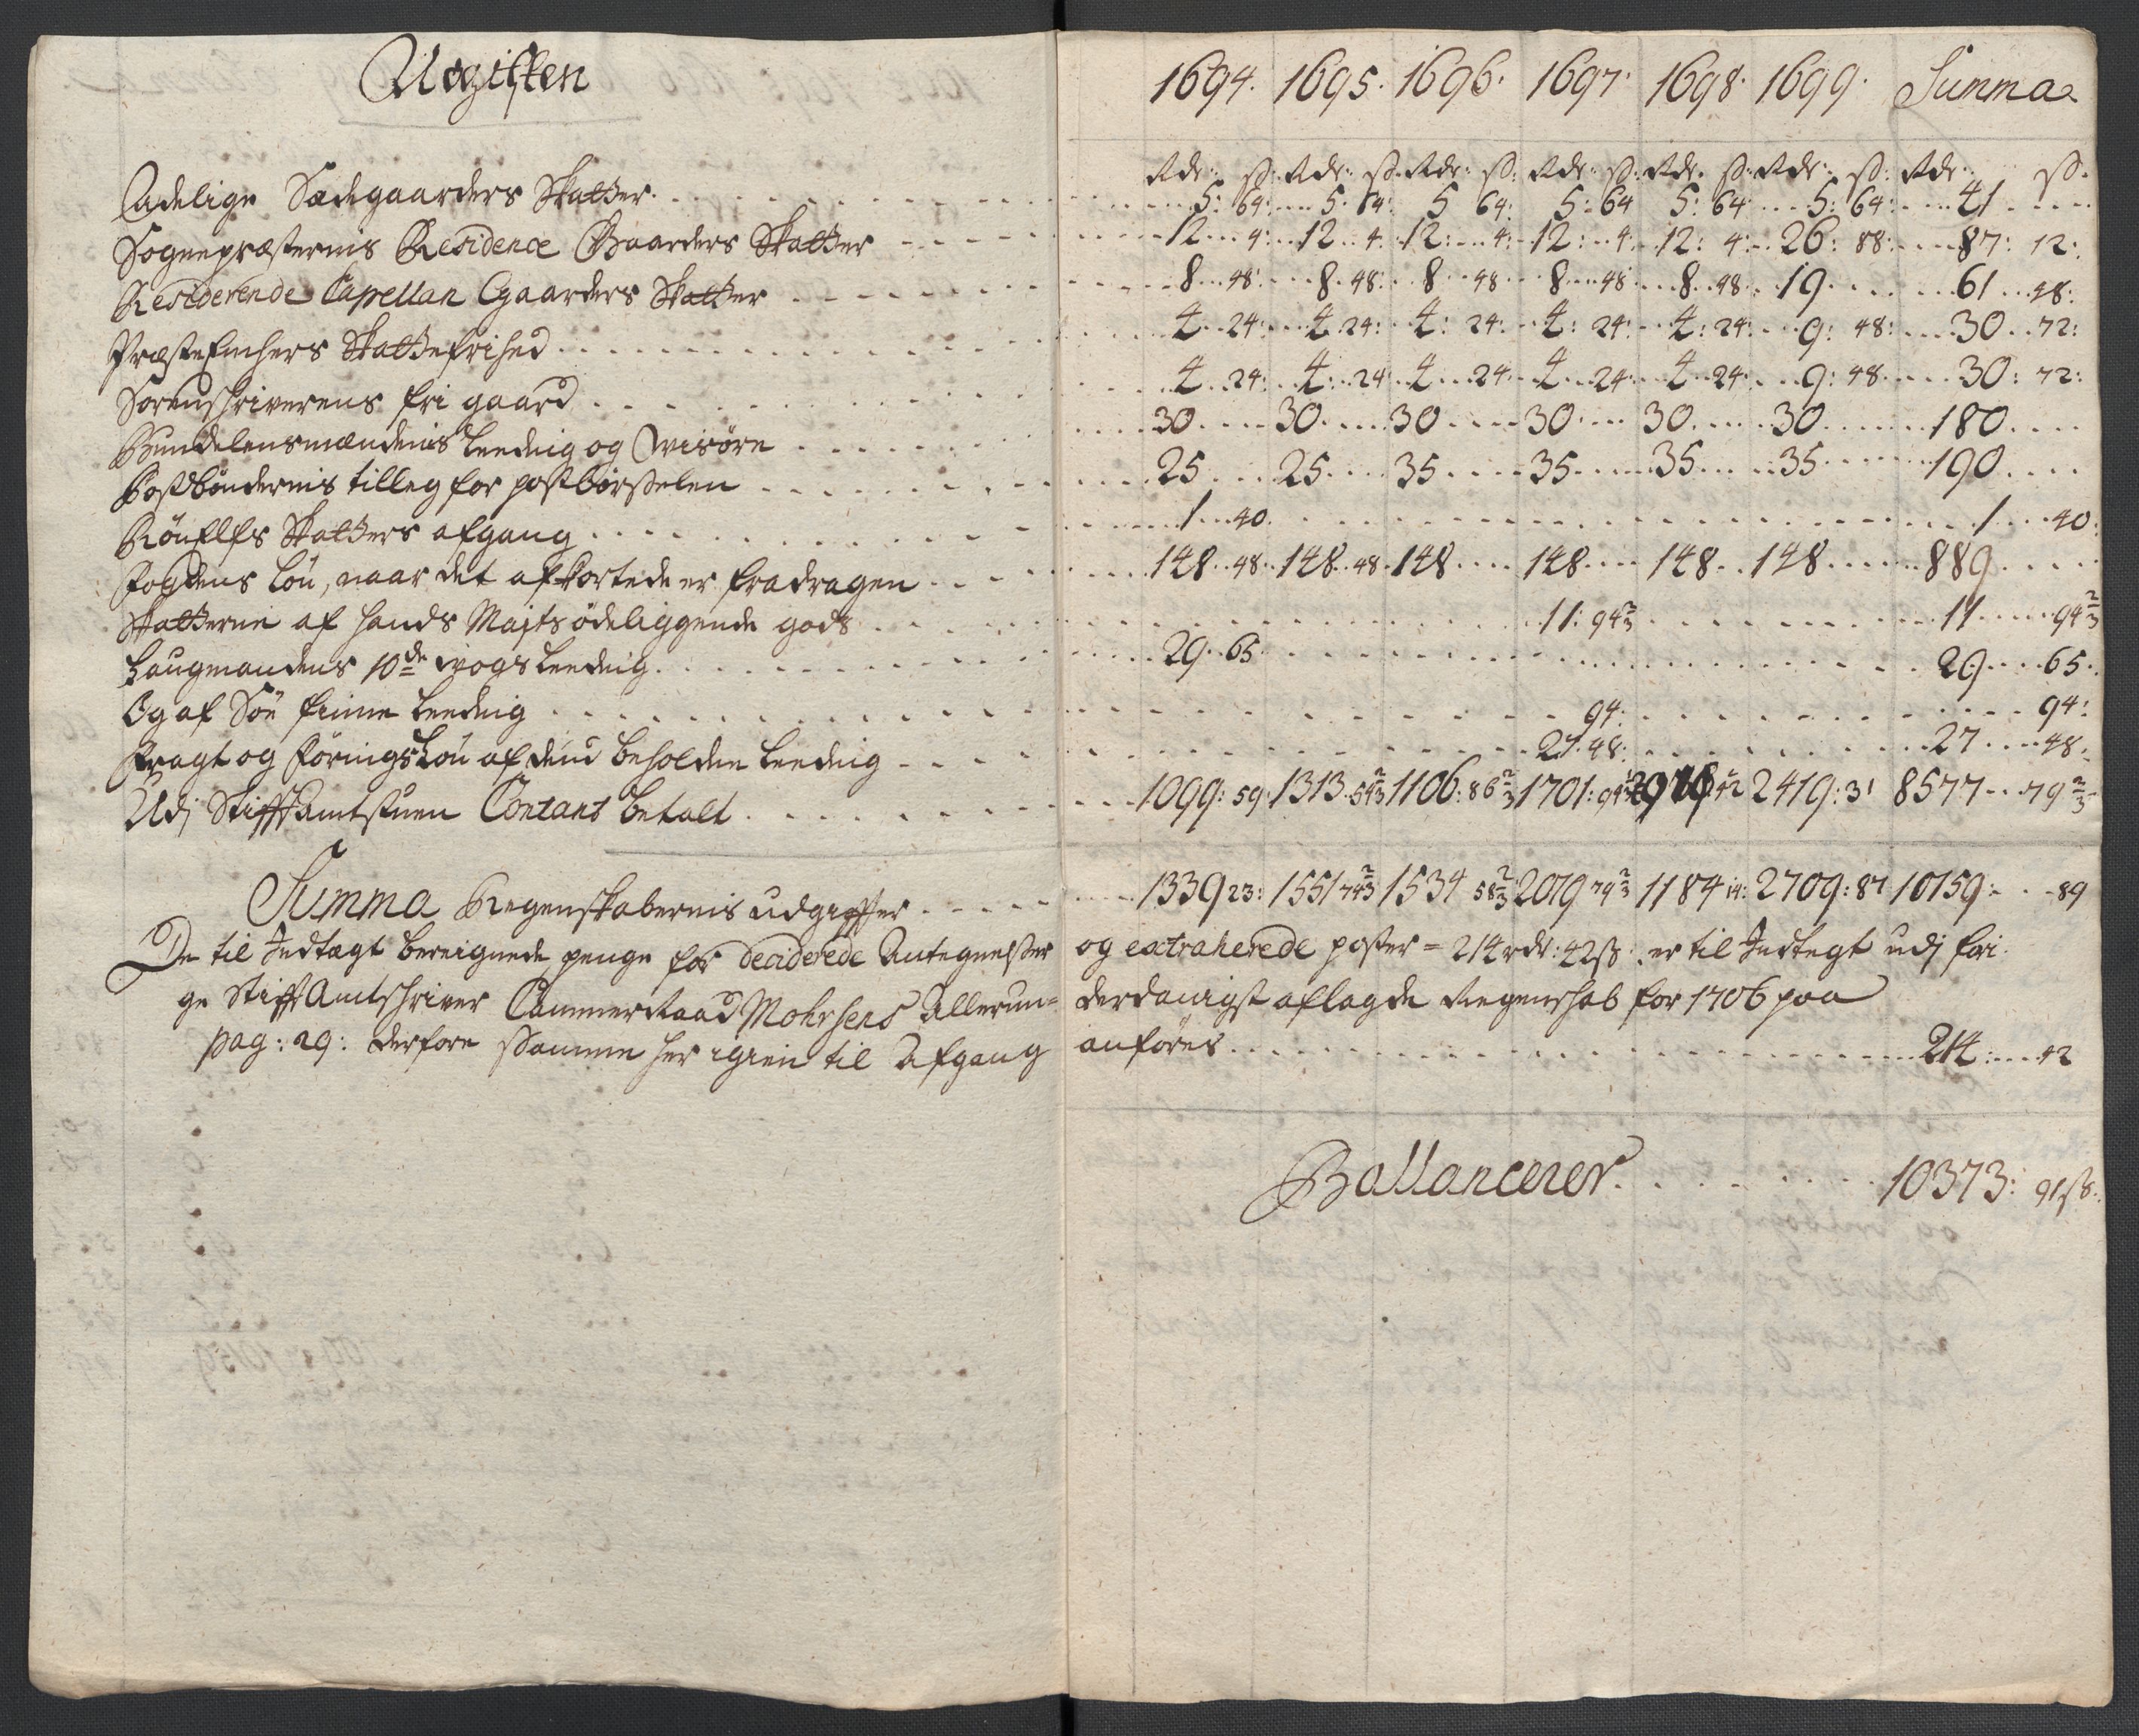 Udgiften 1694. 1695. 1696. 1697. 1698. 1699. Summa
Rdr: ß. Rdr: ß. Rdr: ß. Rdr: ß. Rdr. ß. Rdr: ß: Rdr: ß.
Adelige Sædegaarders Skatter 5: 64: 5: 64: 5 64: 5: 64 5: 64 5: 64: 41
Sognepræsternis Residence Gaarders Skatter 12 4: 12 4 12: 4: 12: 4 12: 4: 26: 88: 87: 12:
Residerende Capellan Gaarders Skatter 8 48: 8 48: 8 48 8 48 8 48 19 61 48:
Præste Enchers Skattefrihed 4 24: 4 24: 4: 24: 4: 24: 4: 24: 9: 48: 30 72:
Sorenschriverens fri gaard 4 24: 4: 24 4 24 4 24 4 24 9: 48 30: 72:
Bundelensmændenis Leeding og Wisöre 30 30 30 30 30 30 180
Postböndernis tilleg for postbörselen 25 25 35 35 35 35 190
Skatters afgang 1 40 1 40:
Fogdens Lön, naar det afkortede er fradragen 148 48 148 48 148 148 148 148 889
Skatterne af Hands Majts ödeliggende gods 11: 94 2/3 11 94 2/3
Laugmandens 10de wogs Leeding 29 65 29 65
Og af Söe finne Leeding 94: 94:
Fragt og Förings Lön af dend beholden Leeding 27 48: 27 48
Udj StifftAmtstuen Contant betalt 1099: 59 1313 54 2/3 1106: 86 2/3 1701: 42 2419: 31 8577 79 2/3
Summa Regenskabernis udgiffter 1339 23: 1551 74 2/3 1534 58 2/3 2079 79 2/3 1184 14: 2709: 87 10159 89
De til Indtægt bereignede penge for deciderede Antegnelsser og extraherede poster = 214 rdr: 42 ß: er til Indtegt udj
ge StifftAmtschriver CammerRaad Mohrsens Allerun= derdanigst aflagde Regenschab for 1706 paa
pag: 29: derfore Samme her igien til Afgang anföres 214 42
Ballancerer 10373: 91 ß.